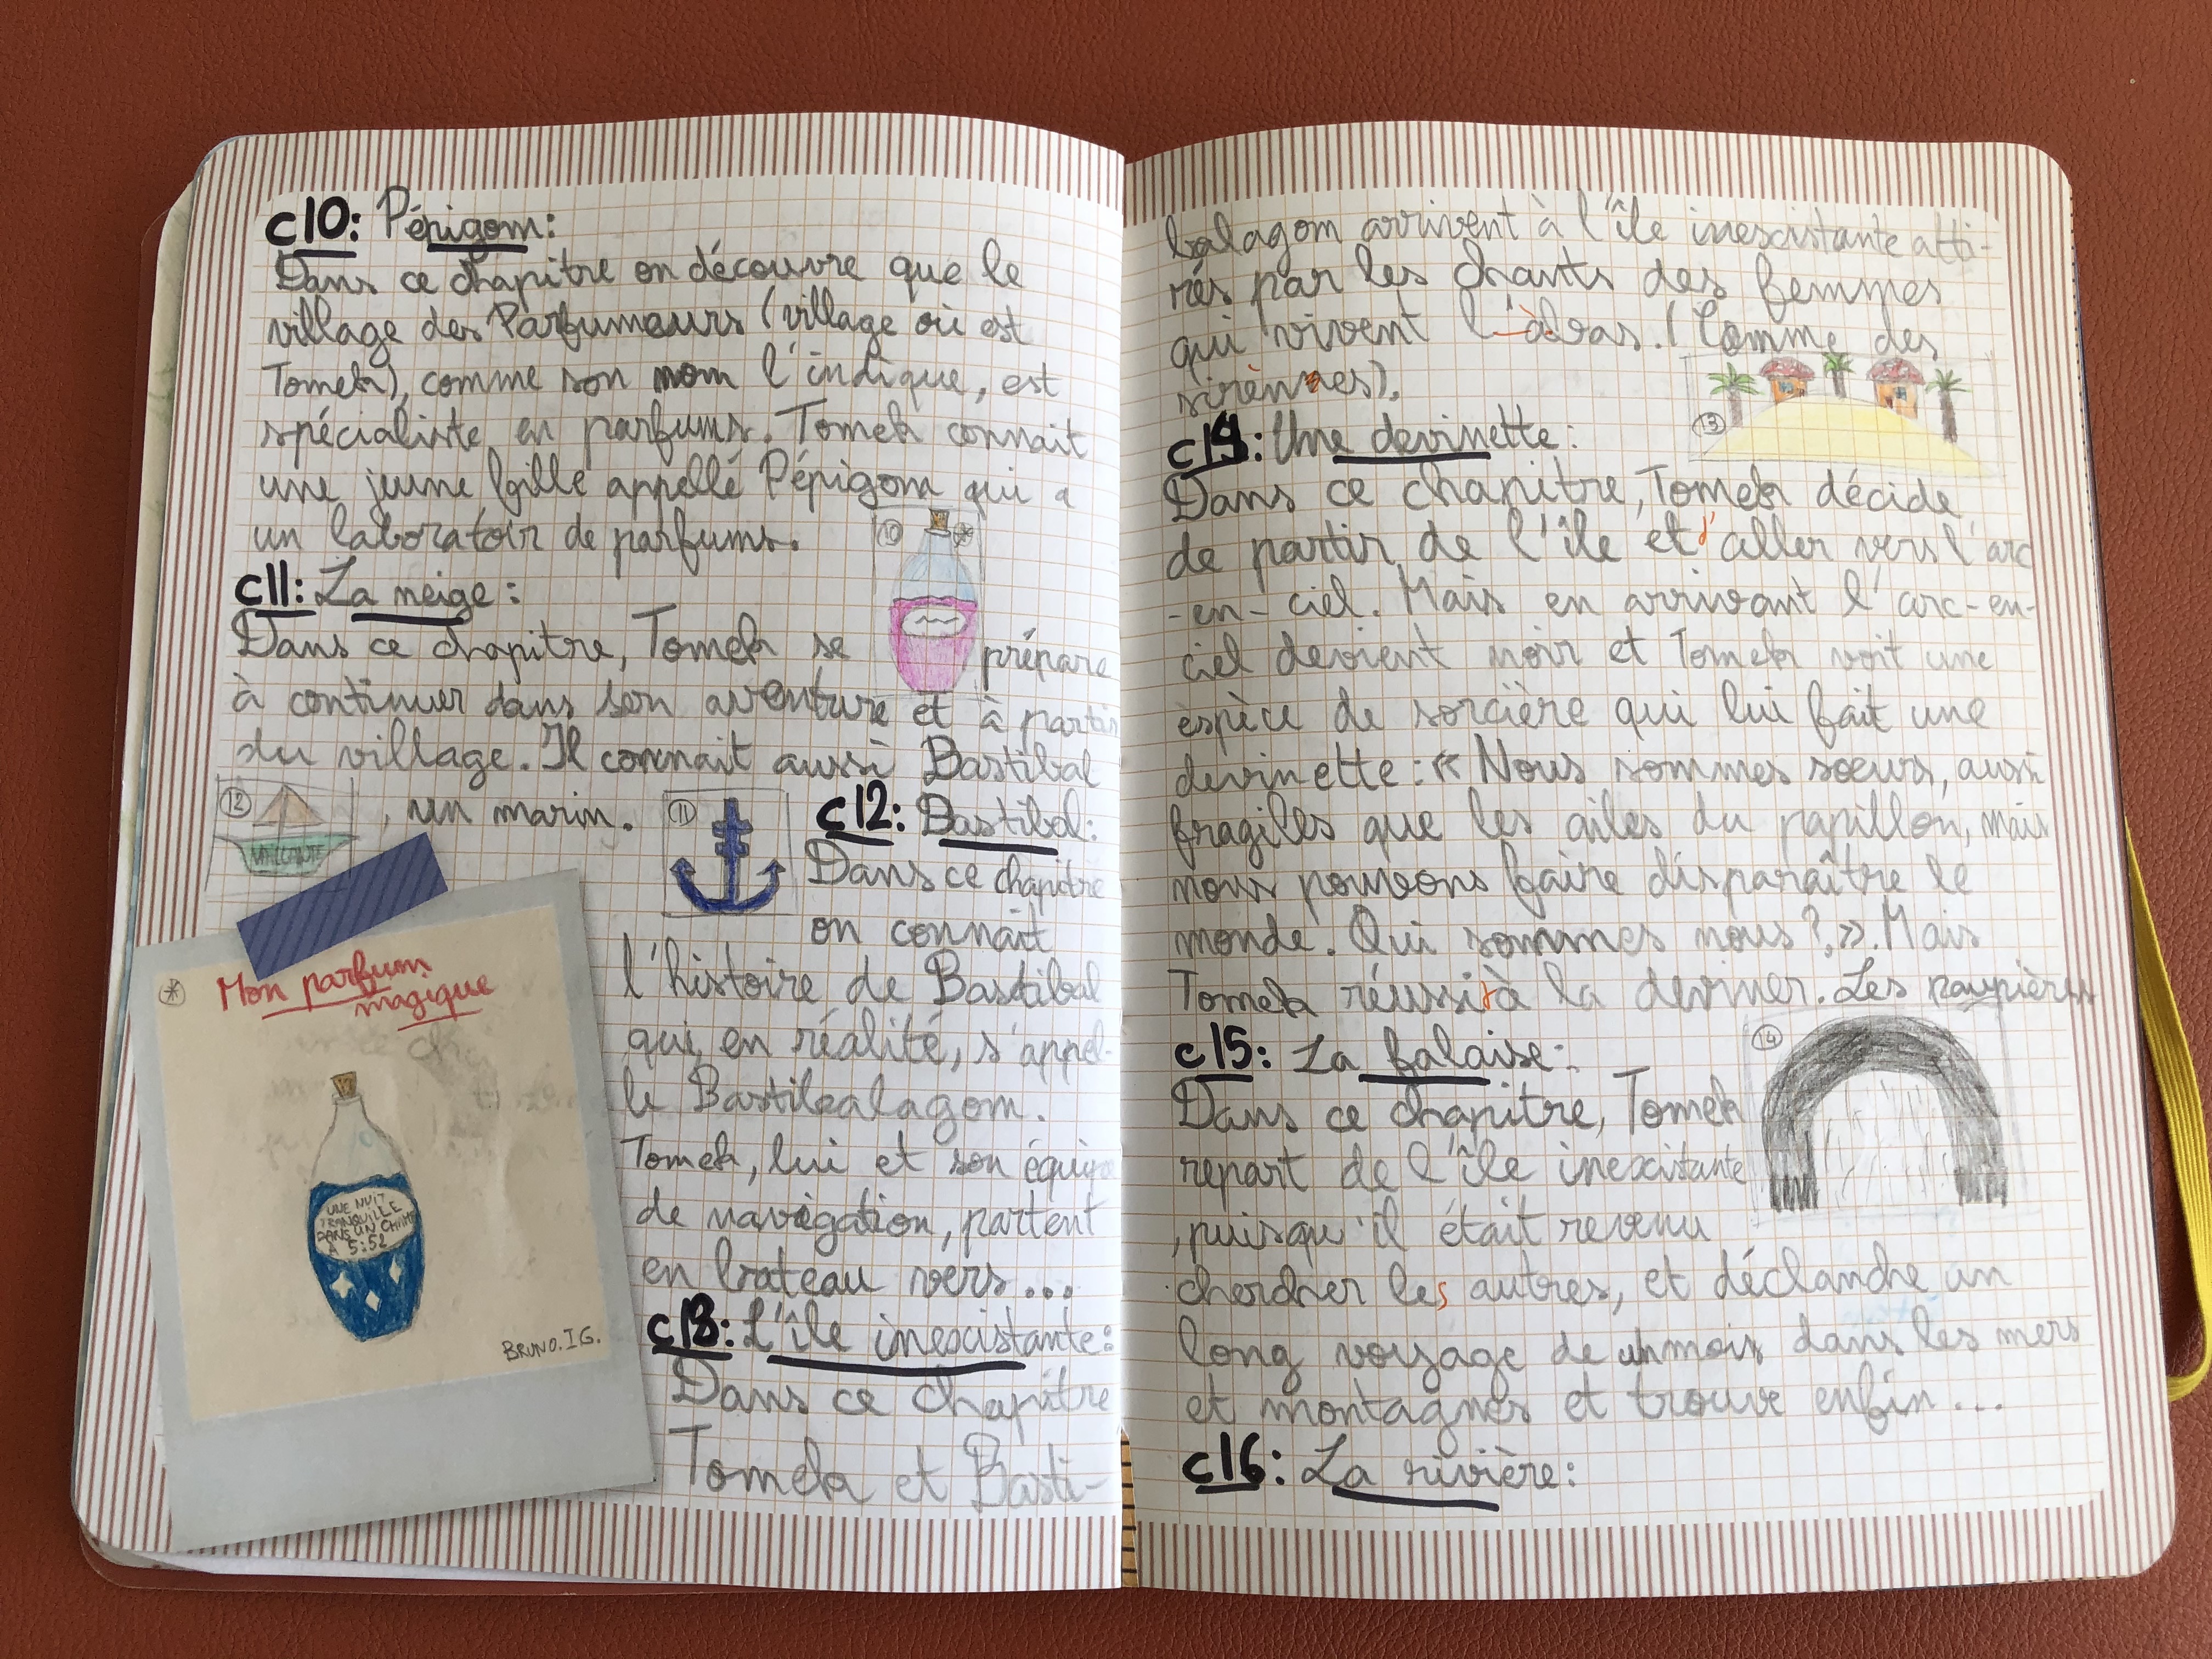 c10: Pépigom:
Dans ce chapitre on découvre que le
village des Parfumeurs (village où est
Tomek), comme son nom l'indique, est
spécialiste en parfums. Tomek connait
une jeune fille appellé Pépigom qui a
un laboratoir de parfums.
10 *
c11: La neige:
Dans ce chapitre, Tomek se prépare
à continuer dans son aventure et à partir
du village. Il connait aussi Bastibal
, un marin.
12
VAILLANTE
11
c12: Bastibal:
Dans ce chapitre
on connait
l'histoire de Bastibal
qui, en réalité, s'appel-
le Bastibalagom.
Tomek, lui et son équipe
de navigation, partent
en bateau vers...
c13: L'île inexistante:
Dans ce chapitre
Tomek et Basti-
* Mon parfum
magique
UNE NUIT
TRANQUILLE
DANS UN CHAMP
À 5:52
BRUNO.I.G.
balagom arrivent à l'île inexistante atti-
rés par les chants des femmes
qui vivent l àbas. (Comme des
sirènes).
13
c14: Une devinette:
Dans ce chapitre, Tomek décide
de partir de l'île et d'aller vers l'arc
-en-ciel. Mais en arrivant l'arc-en-
ciel devient noir et Tomek voit une
espèce de sorcière qui lui fait une
devinette: « Nous sommes sœurs, aussi
fragiles que les ailes du papillon, mais
nous pouvons faire disparaître le
monde. Qui sommes nous?,». Mais
Tomek réussit à la deviner. Les paupières
c15: La falaise:
14
Dans ce chapitre, Tomek
repart de l'île inexistante
, puisqu'il était revenu
chercher les autres, et déclanche un
long voyage de un mois dans les mers
et montagnes et trouve enfin...
c16: La rivière: